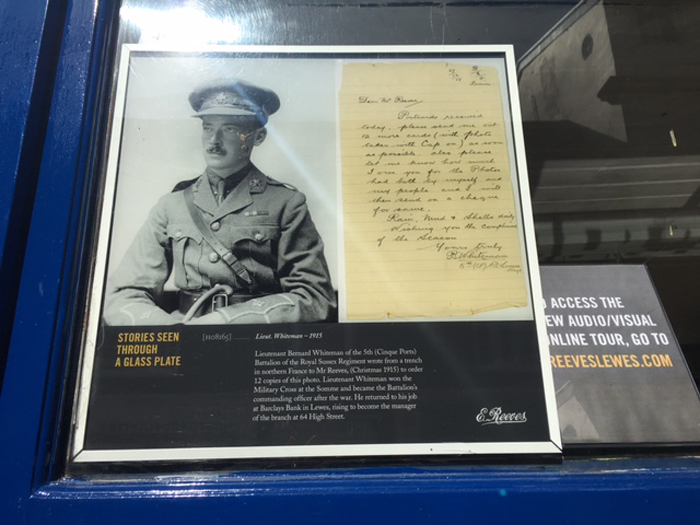 Dear Mr Reeves
Postcards received
today, please send me out
12 more cards (with photo
taken with Cap on) as soon
as possible. also please
let me know how much
I owe you for the Photos
had both by myself and
my people and I will
then send on a cheque
for same.
Rain, Mud & Shells daily
Wishing you the compliments
of the Season
Yours truly
B. Whiteman
STORIES SEEN
THROUGH
A GLASS PLATE
Lieut. Whiteman – 1915
Lieutenant Bernard Whiteman of the 5th (Cinque Ports)
Battalion of the Royal Sussex Regiment wrote from a trench
in northern France to Mr Reeves, (Christmas 1915) to order
12 copies of this photo. Lieutenant Whiteman won the
Military Cross at the Somme and became the Battalion's
commanding officer after the war. He returned to his job
at Barclays Bank in Lewes, rising to become the manager
of the branch at 64 High Street.
E. Reeves
ACCESS THE
EW AUDIO/VISUAL
NLINE TOUR, GO TO
REEVESLEWES.COM